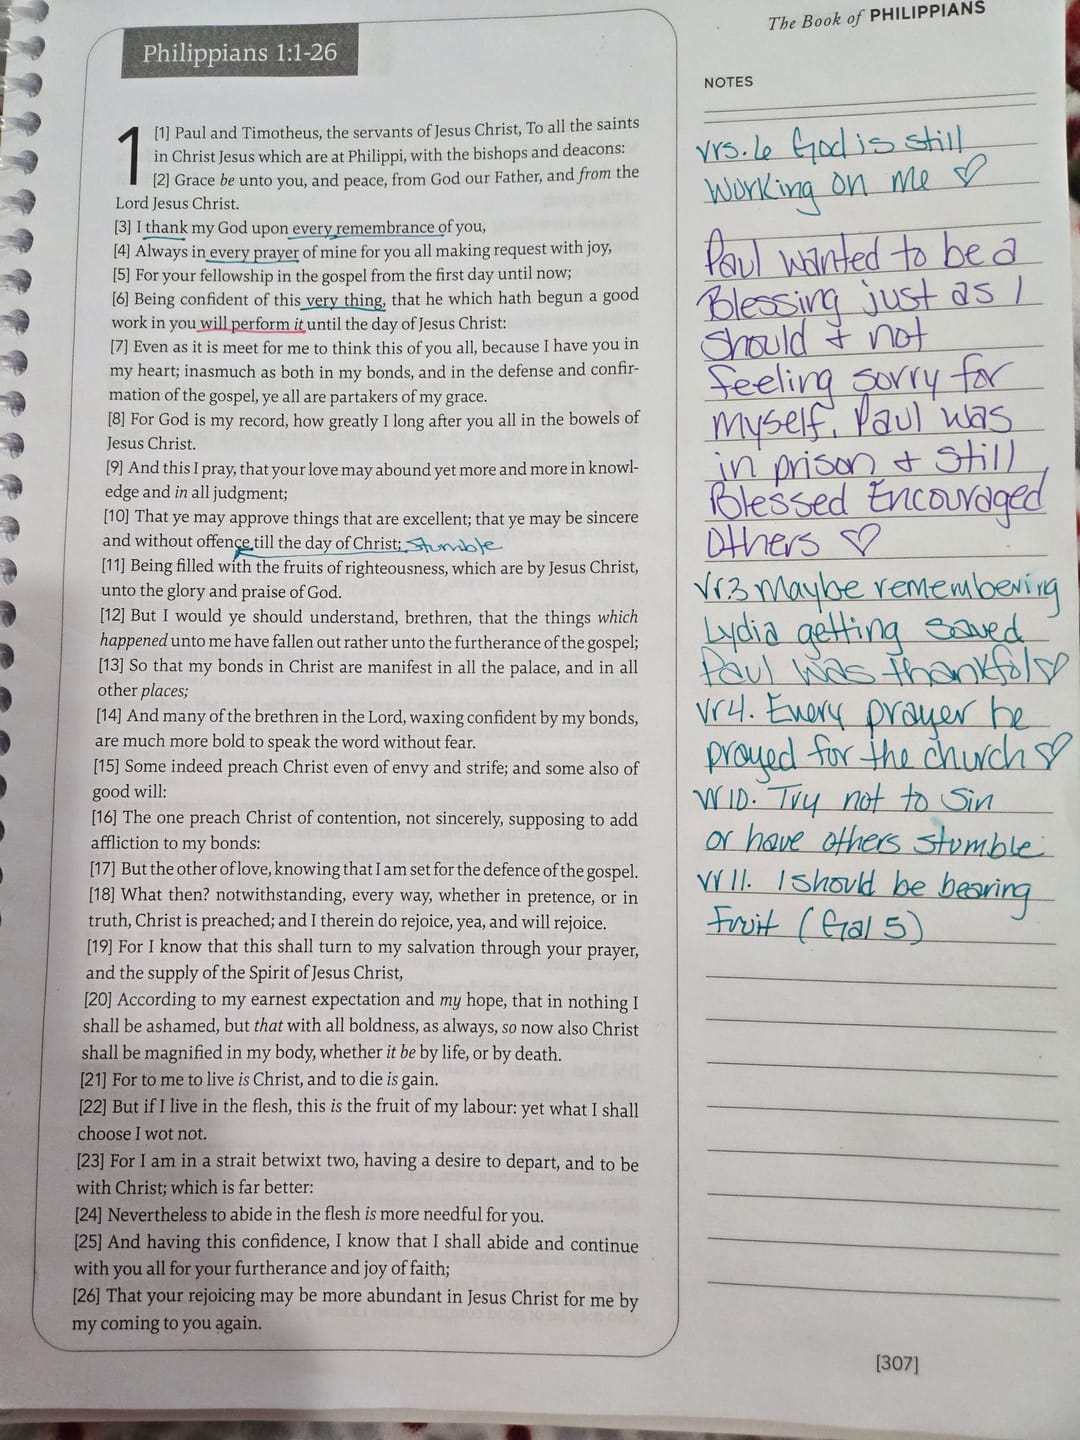 The Book of PHILIPPIANS
Philippians 1:1-26
1
[1] Paul and Timotheus, the servants of Jesus Christ, To all the saints
in Christ Jesus which are at Philippi, with the bishops and deacons:
[2] Grace be unto you, and peace, from God our Father, and from the
Lord Jesus Christ.
[3] I thank my God upon every remembrance of you,
[4] Always in every prayer of mine for you all making request with joy,
[5] For your fellowship in the gospel from the first day until now;
[6] Being confident of this very thing, that he which hath begun a good
work in you will perform it until the day of Jesus Christ:
[7] Even as it is meet for me to think this of you all, because I have you in
my heart; inasmuch as both in my bonds, and in the defense and confir-
mation of the gospel, ye all are partakers of my grace.
[8] For God is my record, how greatly I long after you all in the bowels of
Jesus Christ.
[9] And this I pray, that your love may abound yet more and more in knowl-
edge and in all judgment;
[10] That ye may approve things that are excellent; that ye may be sincere
and without offence till the day of Christ; stumble
[11] Being filled with the fruits of righteousness, which are by Jesus Christ,
unto the glory and praise of God.
[12] But I would ye should understand, brethren, that the things which
happened unto me have fallen out rather unto the furtherance of the gospel;
[13] So that my bonds in Christ are manifest in all the palace, and in all
other places;
[14] And many of the brethren in the Lord, waxing confident by my bonds,
are much more bold to speak the word without fear.
[15] Some indeed preach Christ even of envy and strife; and some also of
good will:
[16] The one preach Christ of contention, not sincerely, supposing to add
affliction to my bonds:
[17] But the other of love, knowing that I am set for the defence of the gospel.
[18] What then? notwithstanding, every way, whether in pretence, or in
truth, Christ is preached; and I therein do rejoice, yea, and will rejoice.
[19] For I know that this shall turn to my salvation through your prayer,
and the supply of the Spirit of Jesus Christ,
[20] According to my earnest expectation and my hope, that in nothing I
shall be ashamed, but that with all boldness, as always, so now also Christ
shall be magnified in my body, whether it be by life, or by death.
[21] For to me to live is Christ, and to die is gain.
[22] But if I live in the flesh, this is the fruit of my labour: yet what I shall
choose I wot not.
[23] For I am in a strait betwixt two, having a desire to depart, and to be
with Christ; which is far better:
[24] Nevertheless to abide in the flesh is more needful for you.
[25] And having this confidence, I know that I shall abide and continue
with you all for your furtherance and joy of faith;
[26] That your rejoicing may be more abundant in Jesus Christ for me by
my coming to you again.
NOTES
vrs. 6 God is still
working on me ♡
Paul wanted to be a
Blessing just as I
should + not
feeling sorry for
myself. Paul was
in prison + still
Blessed Encouraged
Others ♡
Vr.3 Maybe remembering
Lydia getting saved
Paul was thankful ♡
Vr 4. Every prayer he
prayed for the church ♡
Vr 10. Try not to Sin
or have others stumble
Vr 11. I should be bearing
fruit (Gal 5)
[307]